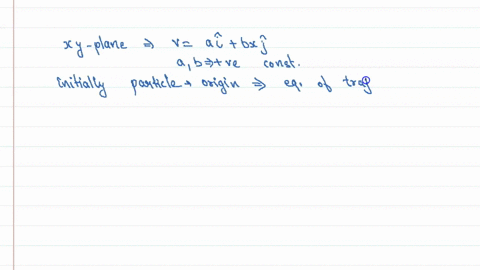 xy-plane ⇒ v = aî + bxĵ
a, b ⇒ +ve const.
initially particle → origin ⇒ eq. of traj